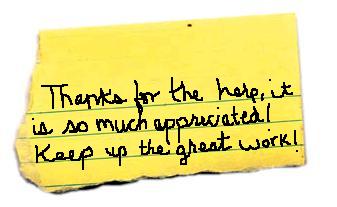 Thanks for the help, it
is so much appreciated!
Keep up the great work!